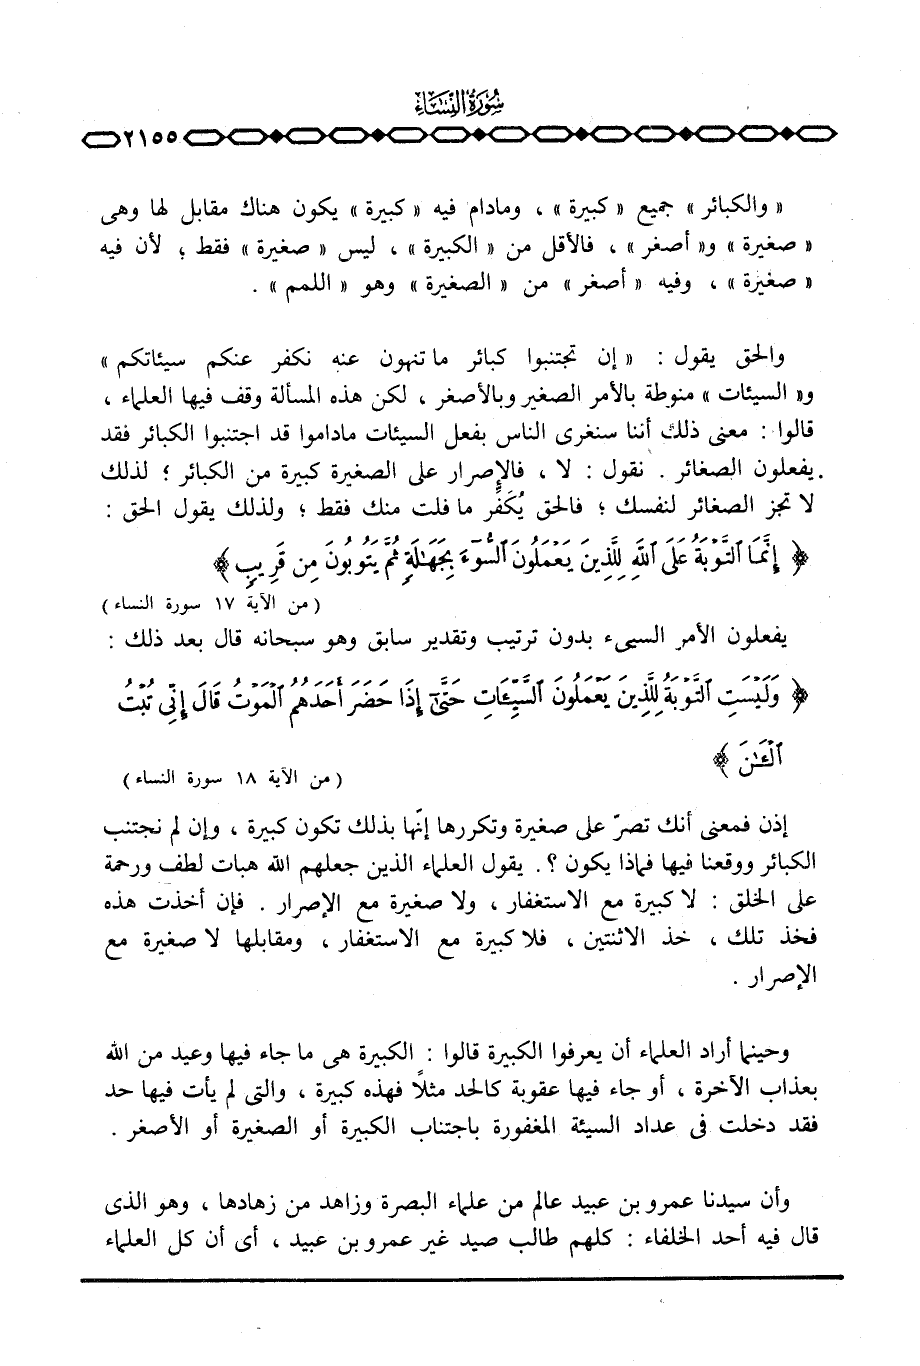 سُورَةُ النِّسَاءِ
٢١٥٥
« والكبائر » جميع « كبيرة » ، ومادام فيه « كبيرة » يكون هناك مقابل لها وهى
« صغيرة » و« أصغر » ، فالأقل من « الكبيرة » ، ليس « صغيرة » فقط ؛ لأن فيه
« صغيرة » ، وفيه « أصغر » من « الصغيرة » وهو « اللمم » .
والحق يقول : « إن تجتنبوا كبائر ما تنهون عنه نكفر عنكم سيئاتكم »
و« السيئات » منوطة بالأمر الصغير وبالأصغر ، لكن هذه المسألة وقف فيها العلماء ،
قالوا : معنى ذلك أننا سنغرى الناس بفعل السيئات ماداموا قد اجتنبوا الكبائر فقد
يفعلون الصغائر . نقول : لا ، فالإصرار على الصغيرة كبيرة من الكبائر ؛ لذلك
لا تجز الصغائر لنفسك ؛ فالحق يُكَفِّر ما فلت منك فقط ؛ ولذلك يقول الحق :
﴿ إِنَّمَا ٱلتَّوْبَةُ عَلَى ٱللَّهِ لِلَّذِينَ يَعْمَلُونَ ٱلسُّوٓءَ بِجَهَٰلَةٍ ثُمَّ يَتُوبُونَ مِن قَرِيبٍ ﴾
( من الآية ١٧ سورة النساء )
يفعلون الأمر السيىء بدون ترتيب وتقدير سابق وهو سبحانه قال بعد ذلك :
﴿ وَلَيْسَتِ ٱلتَّوْبَةُ لِلَّذِينَ يَعْمَلُونَ ٱلسَّيِّـَٔاتِ حَتَّىٰٓ إِذَا حَضَرَ أَحَدَهُمُ ٱلْمَوْتُ قَالَ إِنِّى تُبْتُ
ٱلْـَٰٔنَ ﴾
( من الآية ١٨ سورة النساء )
إذن فمعنى أنك تصرّ على صغيرة وتكررها إنّها بذلك تكون كبيرة ، وإن لم نجتنب
الكبائر ووقعنا فيها فماذا يكون ؟. يقول العلماء الذين جعلهم الله هبات لطف ورحمة
على الخلق : لا كبيرة مع الاستغفار ، ولا صغيرة مع الإصرار . فإن أخذت هذه
فخذ تلك ، خذ الاثنتين ، فلا كبيرة مع الاستغفار ، ومقابلها لا صغيرة مع
الإصرار .
وحينما أراد العلماء أن يعرفوا الكبيرة قالوا : الكبيرة هى ما جاء فيها وعيد من الله
بعذاب الآخرة ، أو جاء فيها عقوبة كالحد مثلاً فهذه كبيرة ، والتى لم يأت فيها حد
فقد دخلت فى عداد السيئة المغفورة باجتناب الكبيرة أو الصغيرة أو الأصغر .
وأن سيدنا عمرو بن عبيد عالم من علماء البصرة وزاهد من زهادها ، وهو الذى
قال فيه أحد الخلفاء : كلهم طالب صيد غير عمرو بن عبيد ، أى أن كل العلماء